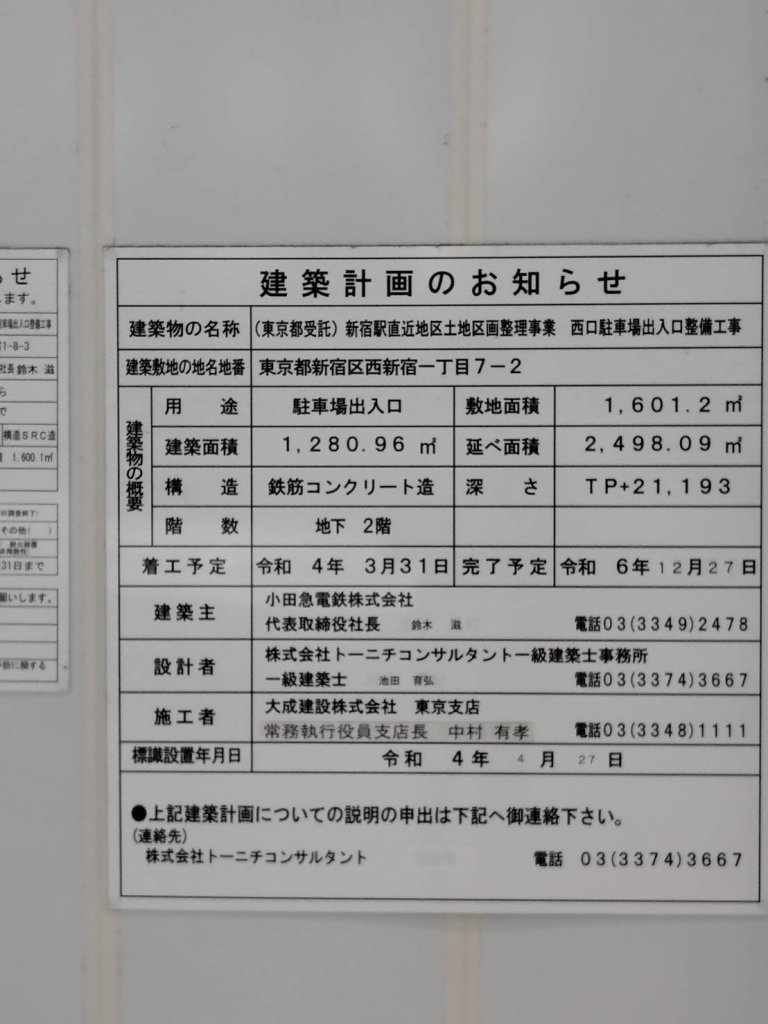 らせ
ます。
車場出入口整備工事
1-8-3
社長 鈴木 滋
ら
で
構造SRC造
1,600.1㎡
その他( )
31日まで
願いします。
建築計画のお知らせ
建築物の名称 (東京都受託)新宿駅直近地区土地区画整理事業 西口駐車場出入口整備工事
建築敷地の地名地番 東京都新宿区西新宿一丁目7－2
建築物の概要
用途 駐車場出入口 敷地面積 1,601.2㎡
建築面積 1,280.96㎡ 延べ面積 2,498.09㎡
構造 鉄筋コンクリート造 深さ TP+21,193
階数 地下 2階
着工予定 令和 4年 3月31日 完了予定 令和 6年12月27日
建築主 小田急電鉄株式会社
代表取締役社長 鈴木 滋 電話03(3349)2478
設計者 株式会社トーニチコンサルタント一級建築士事務所
一級建築士 池田 育弘 電話03(3374)3667
施工者 大成建設株式会社 東京支店
常務執行役員支店長 中村 有孝 電話03(3348)1111
標識設置年月日 令和 4年 4月 27日
●上記建築計画についての説明の申出は下記へ御連絡下さい。
(連絡先)
株式会社トーニチコンサルタント 電話 03(3374)3667